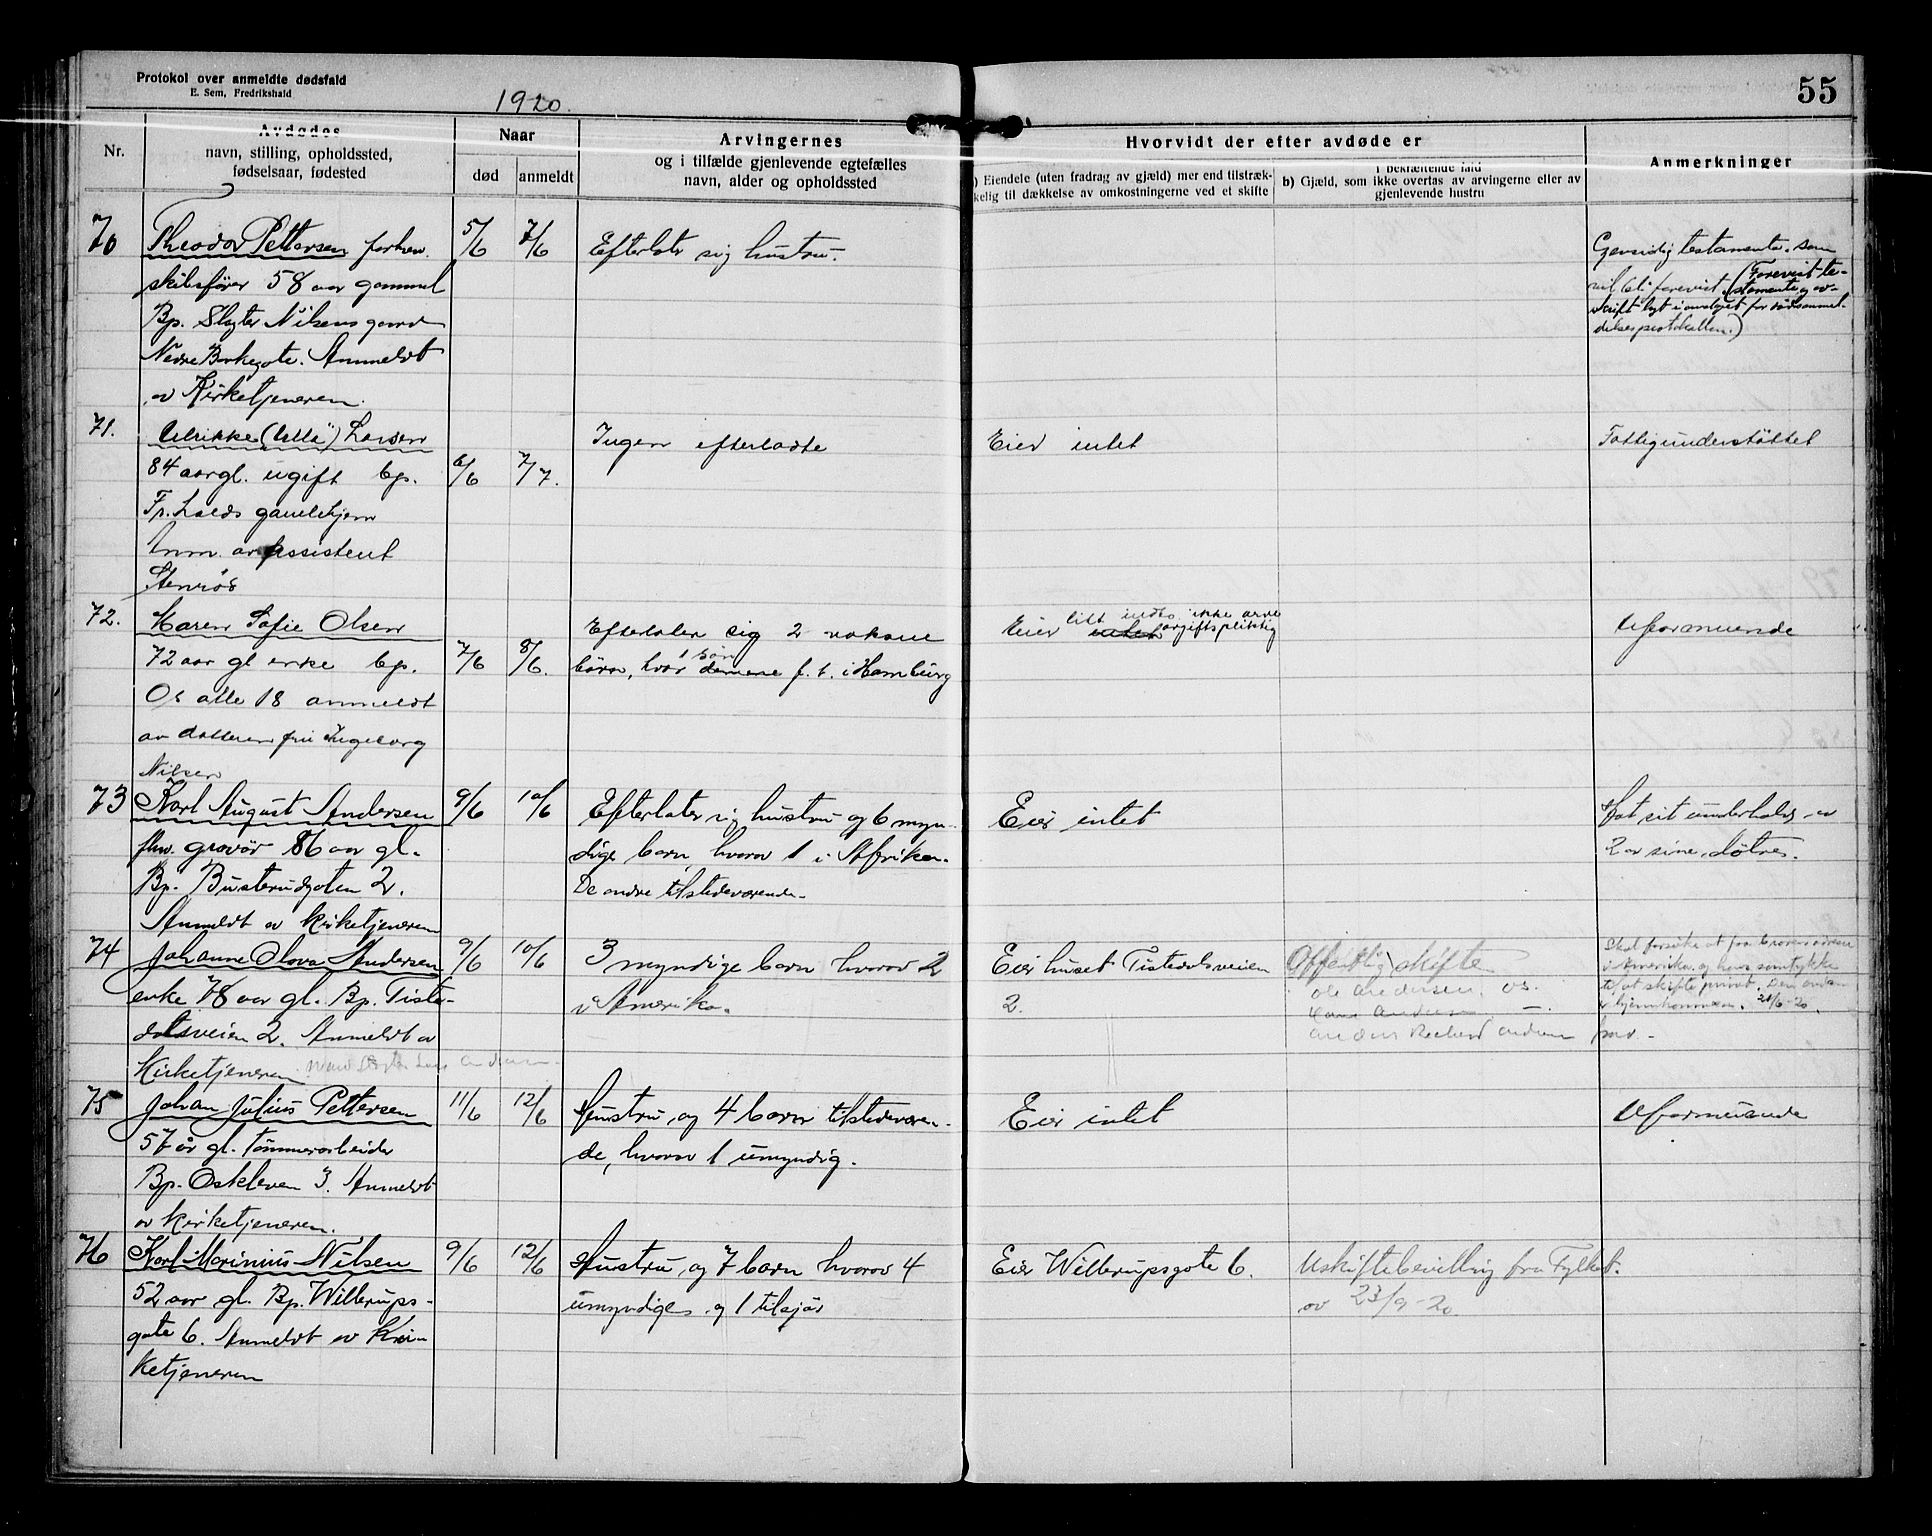 Protokol over anmeldte dødsfald
E. Sem, Fredrikshald
1920.
55
Nr.
Avdødes
navn, stilling, opholdssted,
fødselsaar, fødested
Naar
død
anmeldt
Arvingernes
og i tilfælde gjenlevende egtefælles
navn, alder og opholdssted
Hvorvidt der efter avdøde er
) Eiendele (uten fradrag av gjæld) mer end tilstræk-
kelig til dækkelse av omkostningerne ved et skifte
I bekræftende fald
b) Gjæld, som ikke overtas av arvingerne eller av
gjenlevende hustru
Anmerkninger
70
Theodor Pettersen forhenv.
skibsfører 58 aar gammel
Bp. Slagter Nilsens gaard
Nedre Bankegate. Anmeldt
av Kirketjeneren.
5/6
7/6
Efterlater sig hustru.
Gjensidig testamente som
vil bli forevist. (Forevist te-
stamente og av-
skrift lagt i omslaget for dødsanmel-
delsesprotokollen.)
71.
Ulrikke (Ulla) Larsen
84 aar gl. ugift bp.
Fr.halds gamlehjem
Anm. av assistent
Stenrøs
6/6
7/7.
Ingen efterladte
Eier intet
Fattigunderstøttet
72.
Karen Sofie Olsen
72 aar gl enke bp.
Os alle 18 anmeldt
av datteren fru Ingeborg
Nilsen
7/6
8/6.
Efterlater sig 2 voksne
børn, hvor 1 søn f. t. i Hamburg
Eier litt indbo ikke arve
intet avgiftspliktig
Uformuende
73
Karl August Andersen
fhv. gravør 86 aar gl.
Bp. Busterudgaten 2.
Anmeldt av kirketjeneren
9/6
10/6
Efterlater sig hustru og 6 myn-
dige barn, hvorav 1 i Afrika.
De andre tilstedeværende.
Eier intet
Hat sit underhold av
2 av sine døtre.
74
Johanne Olava Andersen
enke 78 aar gl. Bp. Tiste-
dalsveien 2. Anmeldt av
Kirketjeneren
9/6
10/6
3 myndige barn hvorav 2
i Amerika.
Eier huset Tistedalsveien
2.
Offentlig skifte
Ole Andersen, Os.
Anders Andersen
Skal forsøke at faa broren adresse
i Amerika og hans samtykke
til at skifte privat. Den anden
er hjemkommen. 21/6-20.
75
Johan Julius Pettersen
57 år gl. tømmerarbeider
Bp. Oskleven 3. Anmeldt
av kirketjeneren.
11/6
12/6
Hustru, og 4 barn tilstedeværen-
de, hvorav 1 umyndig.
Eier intet
Uformuende
76
Karl Marinius Nilsen
52 aar gl. Bp. Willerups-
gate 6. Anmeldt av Kir-
ketjeneren
9/6
12/6
Hustru, og 7 barn hvorav 4
umyndige og 1 tilsjøs
Eier Willerupsgate 6.
Uskiftebevilling fra Fylket.
av 23/9-20.